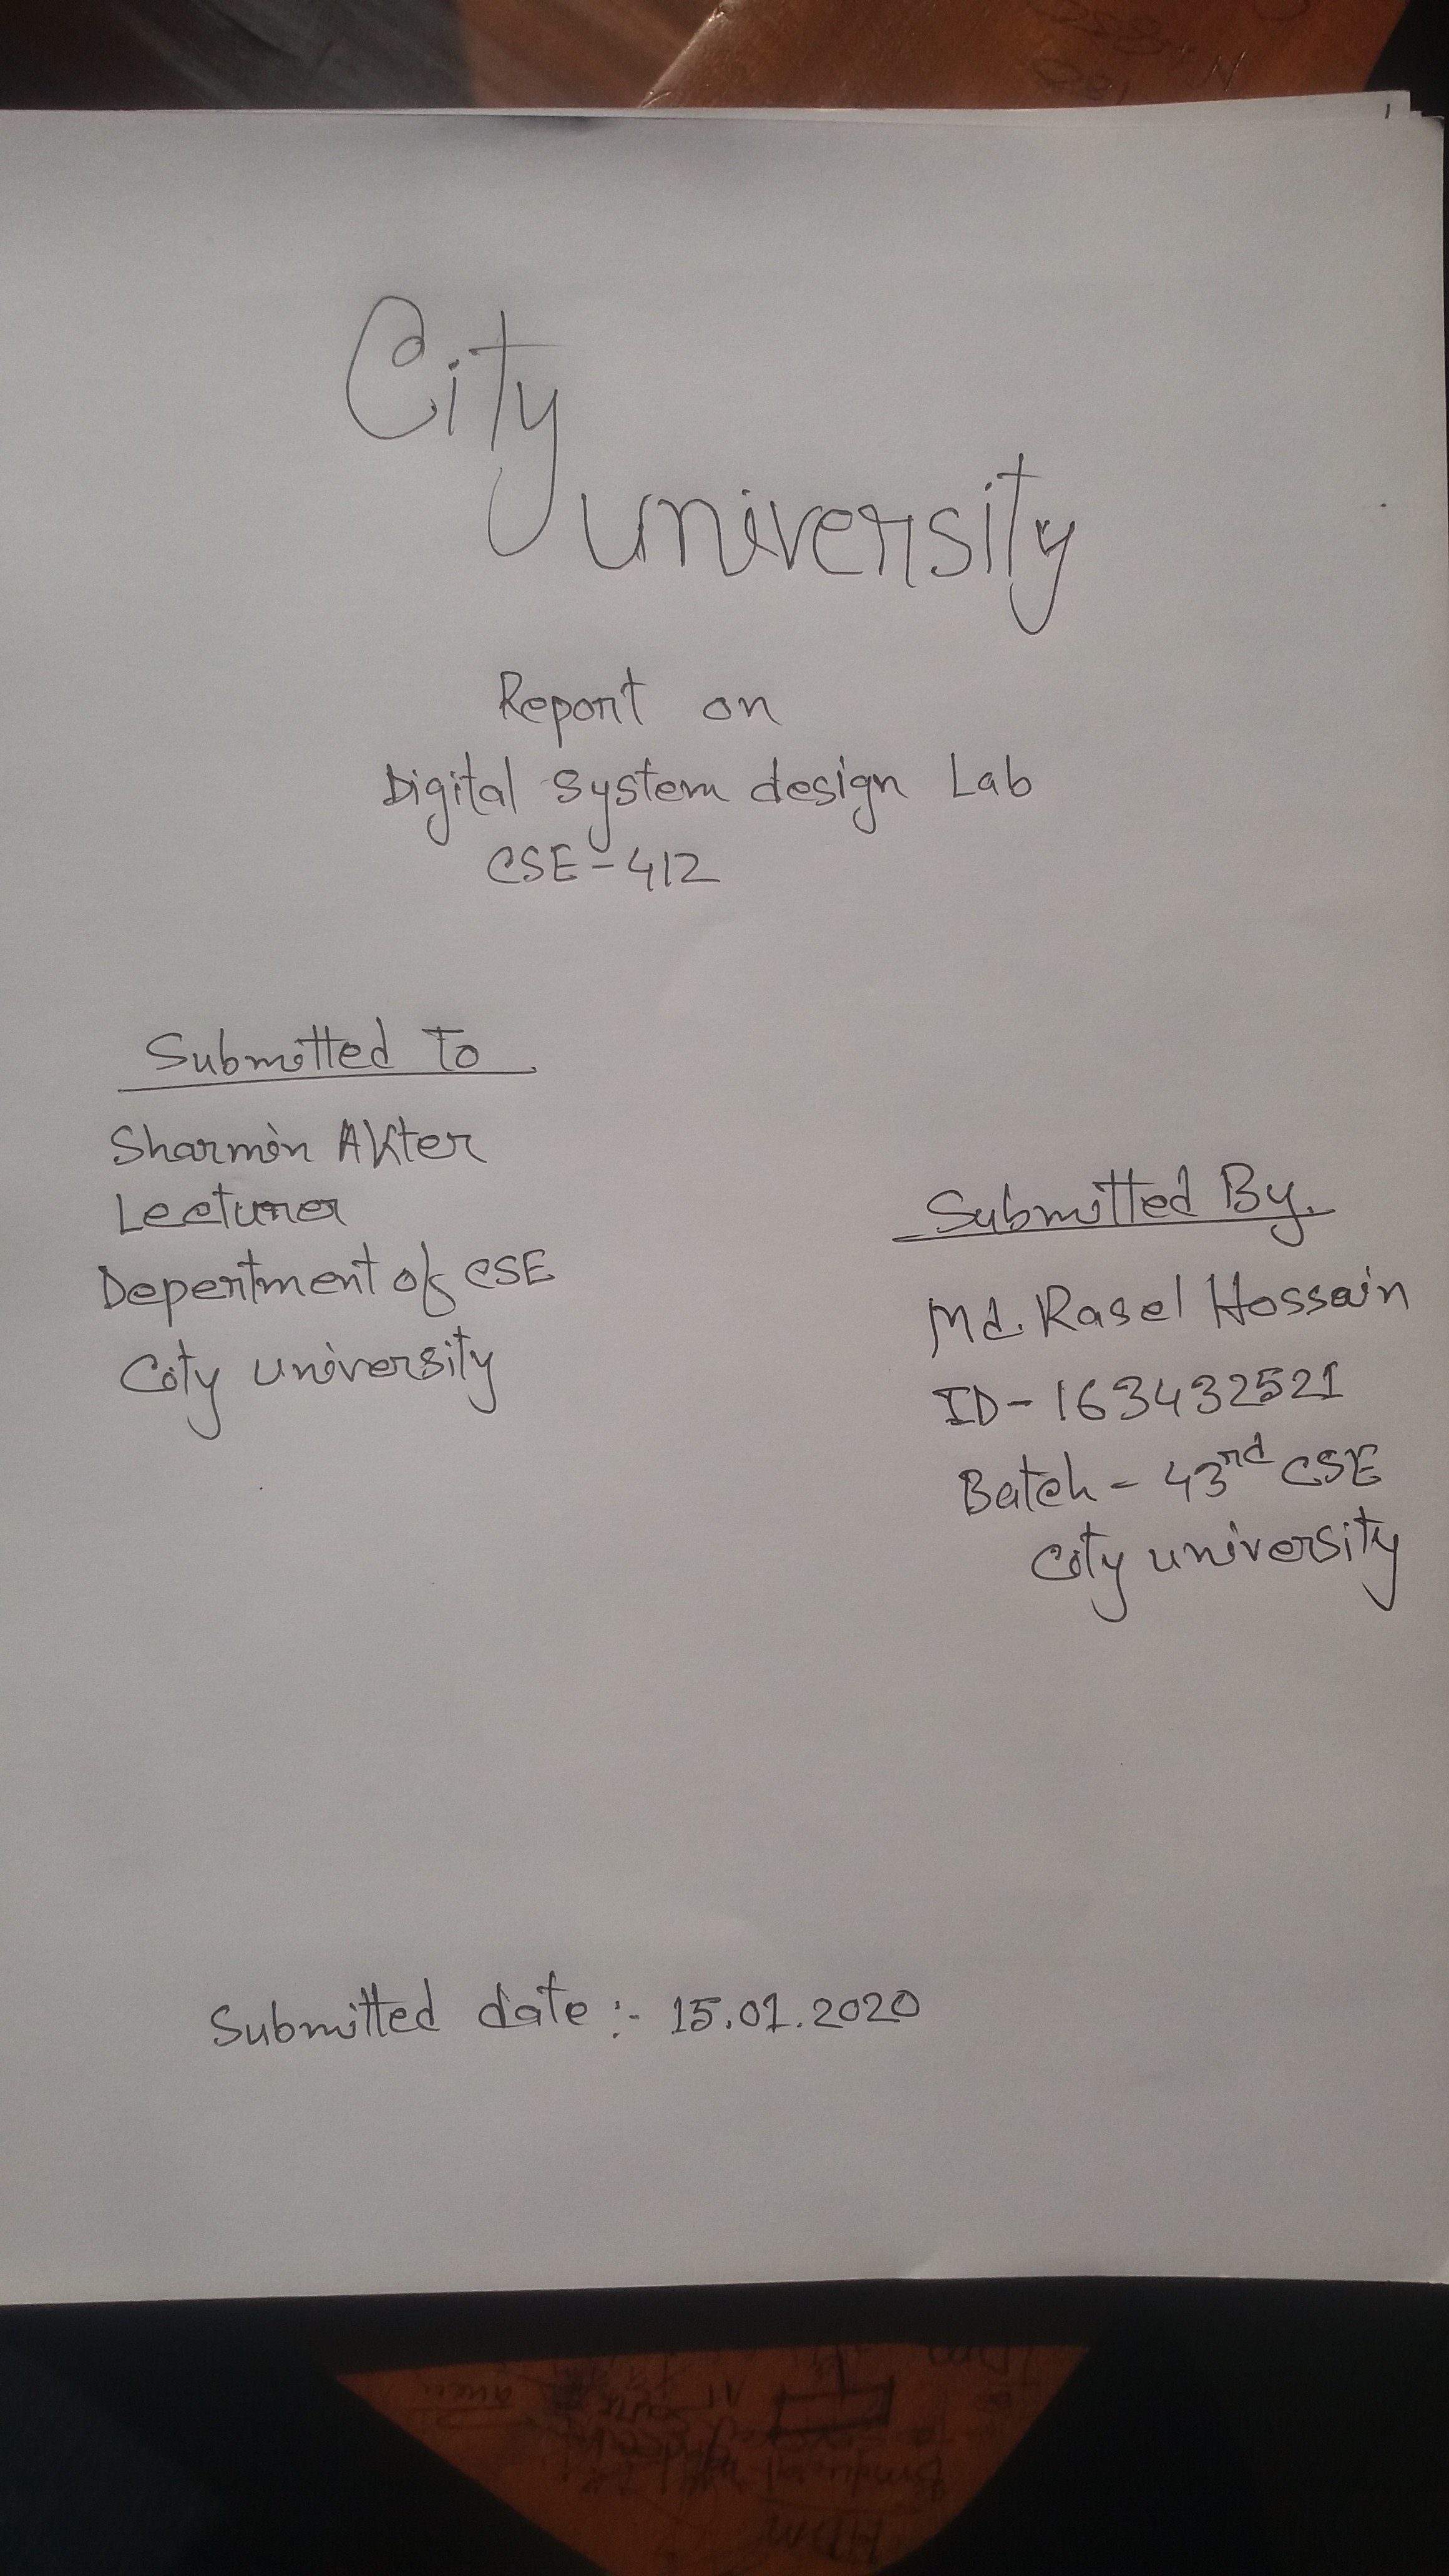 City
university
Report on
Digital System design Lab
CSE-412
Submitted To
Sharmin Akter
Lecturer
Depertment of CSE
City university
Submitted By.
Md. Rasel Hossain
ID-163432521
Batch - 43rd CSE
City university
Submitted date :- 15.01.2020